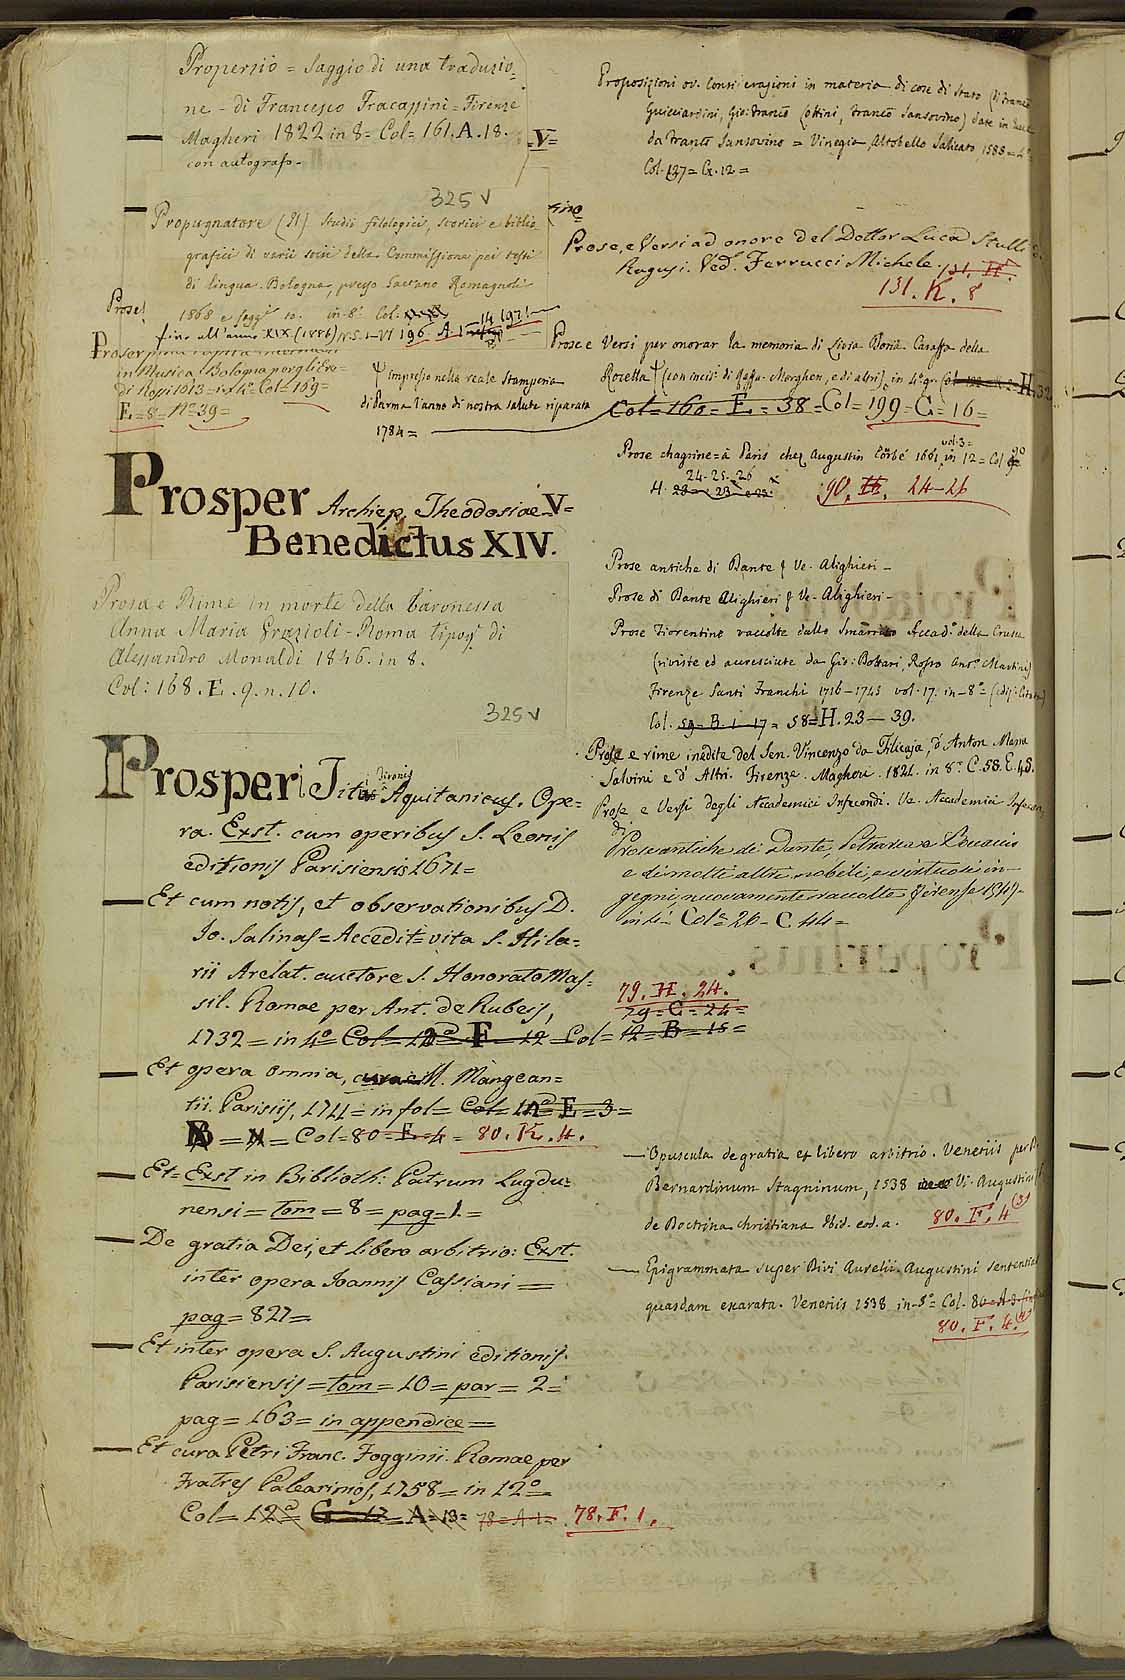 Propersio = Saggio di una traduzio=
ne - di Francesco Fracassini = Firenze
Magheri 1822 in 8 = Col = 161. A. 18.
con autografo -
V=
325 v
Propugnatore (Il) Studii filologici, storici e biblio
grafici di varii socii della Commissione pei testi
di lingua. Bologna, presso Gaetano Romagnoli
1868 e segg. in-8° Col.
fino all'anno XIX. (1886) N.S. I-VI 196 A 1
Prose
in Musica. Bologna per gli Ere=
di Rossi 1613 = in 4° Col = 169 =
E = 8 = N° 39 =
Ψ impresso nella reale Stamperia
di Parma l'anno di nostra salute riparata
1784 =
Prosper Archiep. Theodosiae V=
Benedictus XIV.
Prosa e Rime in morte della baronessa
Anna Maria Grazioli - Roma tipog. di
Alessandro Monaldi 1846. in 8.
Col: 168. E. 9. n. 10.
325 v
Prosperi Aquitanicus. Ope=
ra. Exst. cum operibus S. Leonis
editionis Parisiensis 1671 =
Et cum notis, et observationibus D.
Jo. Salinas = Accedit vita S. Hila=
rii Arelat. auctore S. Honorato Mas=
sil. Romae per Ant. de Rubeis,
1732 = in 4° = Col = 12 F = 12 = Col = 12 = B = 15 =
79. H. 24.
79 = C = 24 =
Et opera omnia, M. Mangean=
tii. Parisiis, 1711 = in fol = Col = E = 3 =
Col = 80 = E = 4 = 80. K. 4.
Et = Exst in Biblioth: Patrum Lugdu=
nensi = tom = 8 = pag = 1 =
De gratia Dei, et libero arbitrio: Exst.
inter opera Joannis Cassiani =
pag = 827 =
Et inter opera S. Augustini editionis
Parisiensis = tom = 10 = par = 2 =
pag = 163 = in appendice =
Et cura Petri Franc. Fogginii. Romae per
Fratres Palearinos, 1758 = in 12° =
Col = 12 = G = 17 = A = 13 = 78 = A 1 = 78. F. 1.
Proposizioni ov. Considerazioni in materia di cose di Stato
Guicciardini, Gio: Franco Lottini, Franco Sansovino) date in
da Franco Sansovino = Vinegia, Altobello Salicato, 1588 =
Col. 137 = G. 12 =
Prose, e Versi ad onore del Dottor Luca Stulli
Ragusi. Ved. Ferrucci Michele. 131. H.
131. K. 8
Prose e Versi per onorar la memoria di Livia Doria Caraffa della
Rocella Ψ (con incis. di Raffa. Morghen, e di altri), in 4° gr.
Col = 160 = E = 38 = Col = 199 = G = 16 =
Prose chagrine = à Paris chez Augustin Corbé 1661, vol. 3 = in 12 = Col 90
H. 24 - 25 - 26
90. H. 24-26
Prose antiche di Dante Ve. Alighieri -
Prose di Dante Alighieri Ve. Alighieri -
Prose Fiorentine raccolte dallo Smarrito Accad. della Crusca
(riviste ed accresciute da Gio: Bottari, Rosso Ant. Martini)
Firenze Santi Franchi 1716-1745 vol. 17. in-8° =
Col. 59 = B. 1 - 17 = 58 = H. 23 - 39.
Prose e rime inedite del Sen. Vincenzo da Filicaja, d'Anton Maria
Salvini e d'Altri. Firenze. Magheri. 1821. in 8° C. 58. E. 48.
Prose, e Versi degli Accademici Infecondi. Ve. Accademici
Prose antiche di Dante, Petrarca e Boccaccio
e di molti altri nobili, e virtuosi in=
gegni, nuovamente raccolte = Firenze 1547 =
in 4° Col = 26 - C. 44 =
Opuscula de gratia et libero arbitrio. Venetiis per
Bernardinum Stagninum, 1538 Vi. Augustini
de Doctrina christiana Ibid. eod. a. 80. F. 4
Epigrammata super Divi Aurelii Augustini sententias
quasdam exarata. Venetiis 1538 in-8° = Col. 80
80. F. 4.